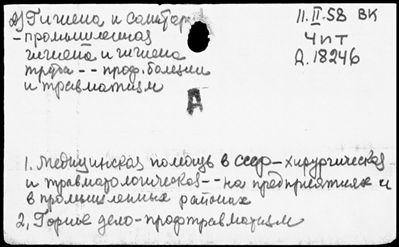 2) Гигиена и санитар.
- промышленная
гигиена и гигиена
труда -- проф. болезни
и травматизм
11.II.58 ВК
ЧИТ
Д.18246
А
1. Медицинская помощь в СССР - хирургическая
и травматологическая -- на предприятиях и
в промышленных районах
2. Горное дело - профтравматизм